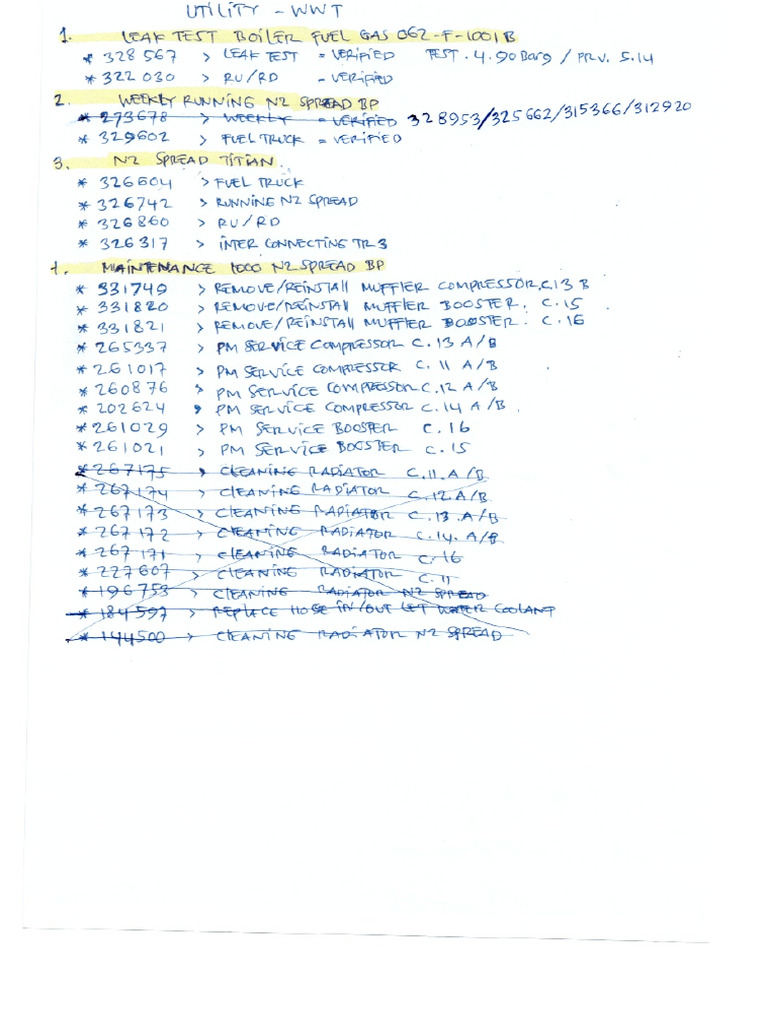 UTILITY - WWT
1. LEAK TEST BOILER FUEL GAS 062-F-1001B
* 328567 > LEAK TEST = VERIFIED TEST. 4.90 Barg / PRV. 5.14
* 322030 > RU/RD = VERIFIED
2. WEEKLY RUNNING N2 SPREAD BP
* 273678 > WEEKLY = VERIFIED 328953/325662/315366/312920
* 329602 > FUEL TRUCK = VERIFIED
3. N2 SPREAD TITIAN.
* 326604 > FUEL TRUCK
* 326742 > RUNNING N2 SPREAD
* 326860 > RU/RD
* 326317 > INTER CONNECTING TR3
1. MAINTENANCE 1000 N2 SPREAD BP
* 331749 > REMOVE/REINSTALL MUFFLER COMPRESSOR. C.13 B
* 331820 > REMOVE/REINSTALL MUFFLER BOOSTER. C.15
* 331821 > REMOVE/REINSTALL MUFFLER BOOSTER. C.16
* 265337 > PM SERVICE COMPRESSOR C.13 A/B
* 261017 > PM SERVICE COMPRESSOR C.11 A/B
* 260876 > PM SERVICE COMPRESSOR C.12 A/B
* 202624 > PM SERVICE COMPRESSOR C.14 A/B.
* 261029 > PM SERVICE BOOSTER C.16
* 261021 > PM SERVICE BOOSTER C.15
* 267175 > CLEANING RADIATOR C.11.A/B
* 267174 > CLEANING RADIATOR C.12 A/B
* 267173 > CLEANING RADIATOR C.13.A/B
* 267172 > CLEANING RADIATOR C.14.A/B
* 267171 > CLEANING RADIATOR C.16
* 227607 > CLEANING RADIATOR C.11
* 196753 > CLEANING RADIATOR N2 SPREAD
* 184597 > REPLACE HOSE IN/OUT LET WATER COOLANT
* 144500 > CLEANING RADIATOR N2 SPREAD